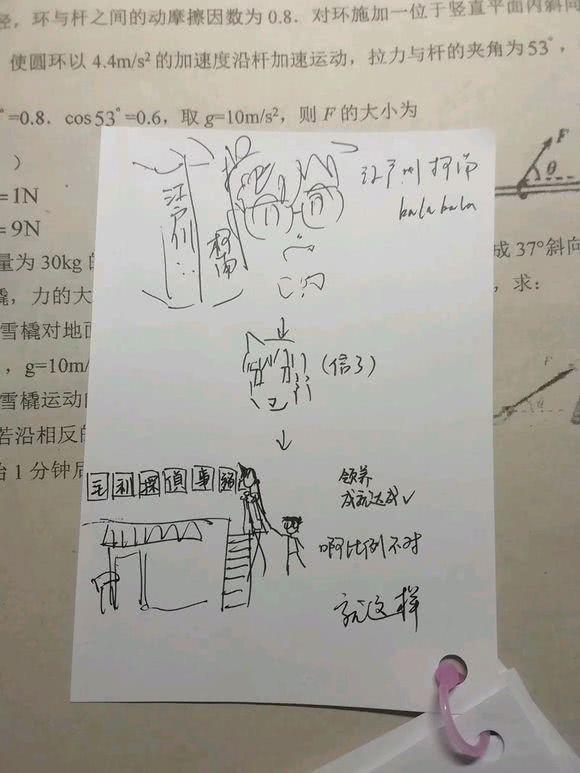 径，环与杆之间的动摩擦因数为 0.8．对环施加一位于竖直平面内斜向
使圆环以 4.4m/s² 的加速度沿杆加速运动，拉力与杆的夹角为53°，
°=0.8．cos53°=0.6，取 g=10m/s²，则 F 的大小为
）
=1N
F
θ
=9N
量为 30kg 的
成 37°斜向
橇，力的大
，求：
雪橇对地面
，g=10m/
雪橇运动的
若沿相反的
1 分钟后
江户川
柯南
江户川 柯南
balabala
(信了)
毛利探偵事務
领养
成就达成✓
啊比例不对
就这样